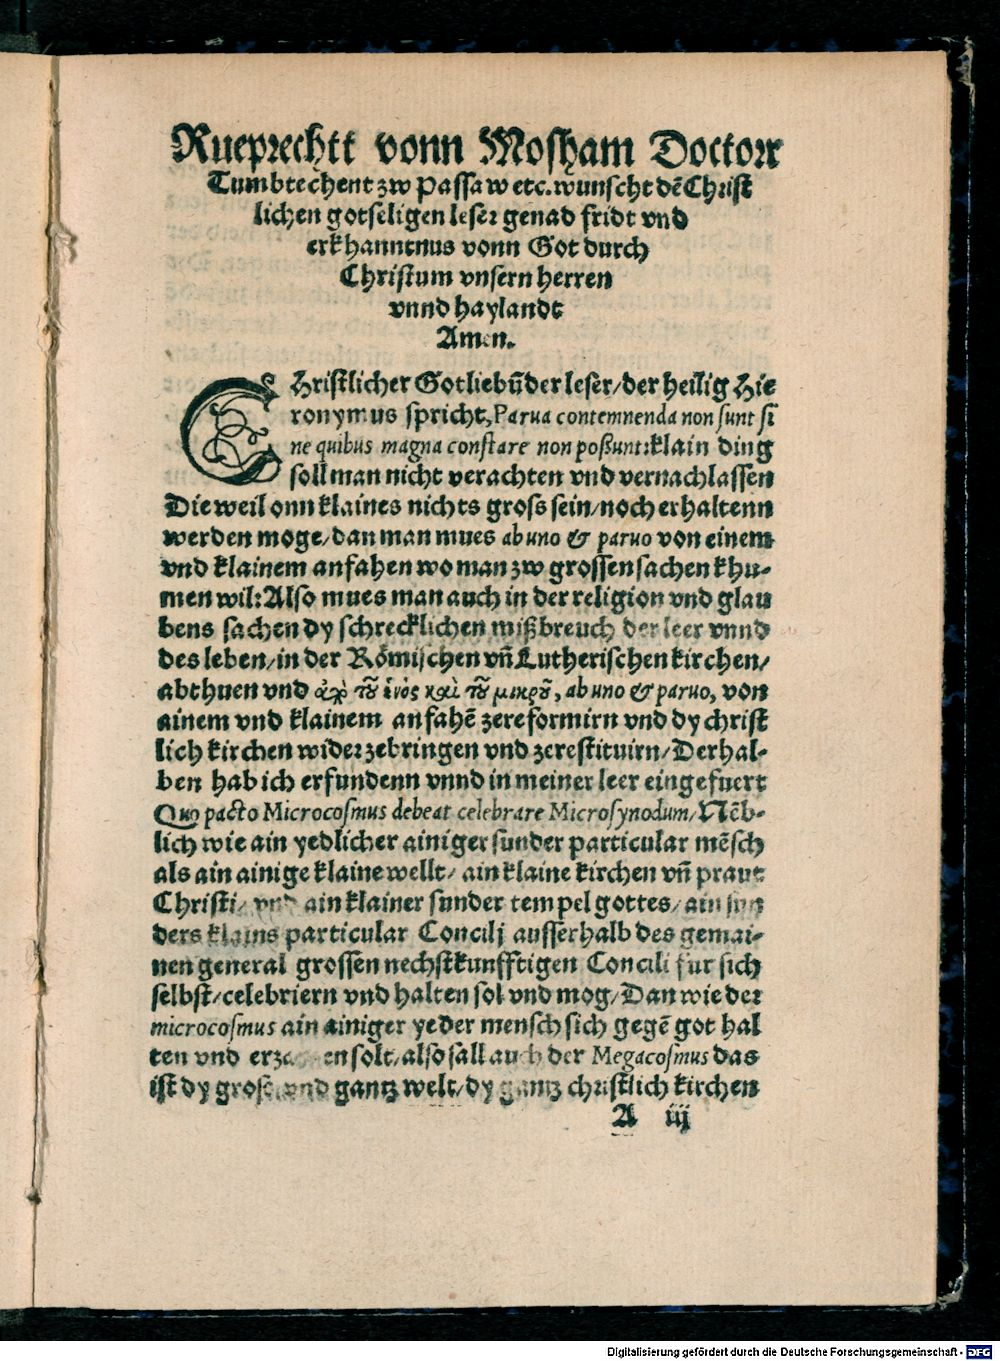 Rueprechtt vonn Mosham Doctorr
Tumbtechent zw Passaw etc. wunscht dē Christ
lichen gotseligen leser genad fridt vnd
erkhanntnus vonn Got durch
Christum vnsern herren
vnnd haylandt
Amen.
CHristlicher Gotliebūder leser/der heilig Hie
ronymus spricht, Parua contemnenda non sunt si
ne quibus magna constare non poßunt: klain ding
soll man nicht verachten vnd vernachlassen
Die weil onn klaines nichts gross sein/noch erhaltenn
werden moge/dan man mues ab uno & paruo von einem
vnd klainem anfahen wo man zw grossen sachen khu-
men wil: Also mues man auch in der religion vnd glau
bens sachen dy schrecklichen mißbreuch der leer vnnd
des leben/in der Römischen vn̄ Lutherischen kirchen/
abthuen vnd ἀπὸ τοῦ ἑνὸς καὶ τοῦ μικροῦ, ab uno & paruo, von
ainem vnd klainem anfahē zereformirn vnd dy christ
lich kirchen widerzebringen vnd zerestituirn/Derhal-
ben hab ich erfundenn vnnd in meiner leer eingefuert
Quo pacto Microcosmus debeat celebrare Microsynodum/Nēb-
lich wie ain yedlicher ainiger sunder particular mēsch
als ain ainige klaine wellt/ ain klaine kirchen vn̄ praut
Christi/ vnd ain klainer sunder tempel gottes/ ain sun
ders klains particular Concilj ausserhalb des gemai-
nen general grossen nechstkunfftigen Concili fur sich
selbst/celebriern vnd halten sol vnd mog/Dan wie der
microcosmus ain ainiger yeder mensch sich gegē got hal
ten vnd solt/also sall auch der Megacosmus das
ist dy gross vnd gantz welt/dy gantz christlich kirchen
A iij
Digitalisierung gefördert durch die Deutsche Forschungsgemeinschaft - DFG